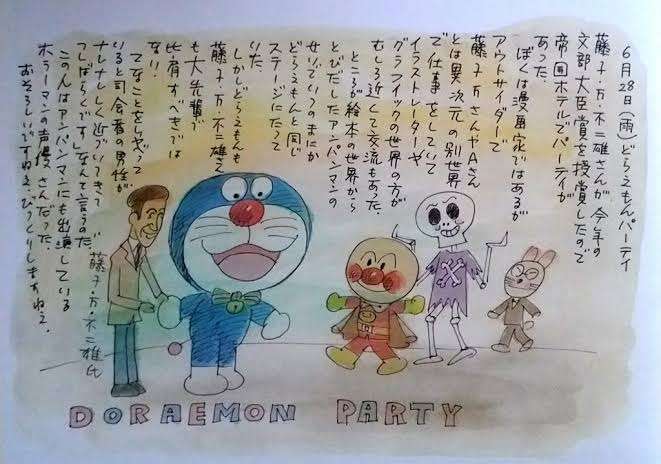 6月28日(雨)どらえもんパーティ
藤子・F・不二雄さんが今年の
文部大臣賞を授賞したので
帝国ホテルでパーティが
あった.
ぼくは漫画家ではあるが
アウトサイダーで
藤子・FさんやAさん
とは異次元の別世界
で仕事をしていて
イラストレーターや
グラフィックの世界の方が
むしろ近くて交流もあった.
ところが絵本の世界から
とびだしたアンパンマンの
せいでいつのまにか
どらえもんと同じ
ステージにたって
いた.
しかしどらえもんも
藤子・F・不二雄さん
も大先輩で
比肩すべきでは
ない.
てなことをしゃべって
いると司会者の男性が
ナレナレしく近づいてきて
「しばらくです」なんて言うのだ.
この人はアンパンマンにも出演している
ホラーマンの声優さんだった.
おそろしいですねえびっくりしますねえ.
藤子・F・不二雄氏
DORAEMON PARTY